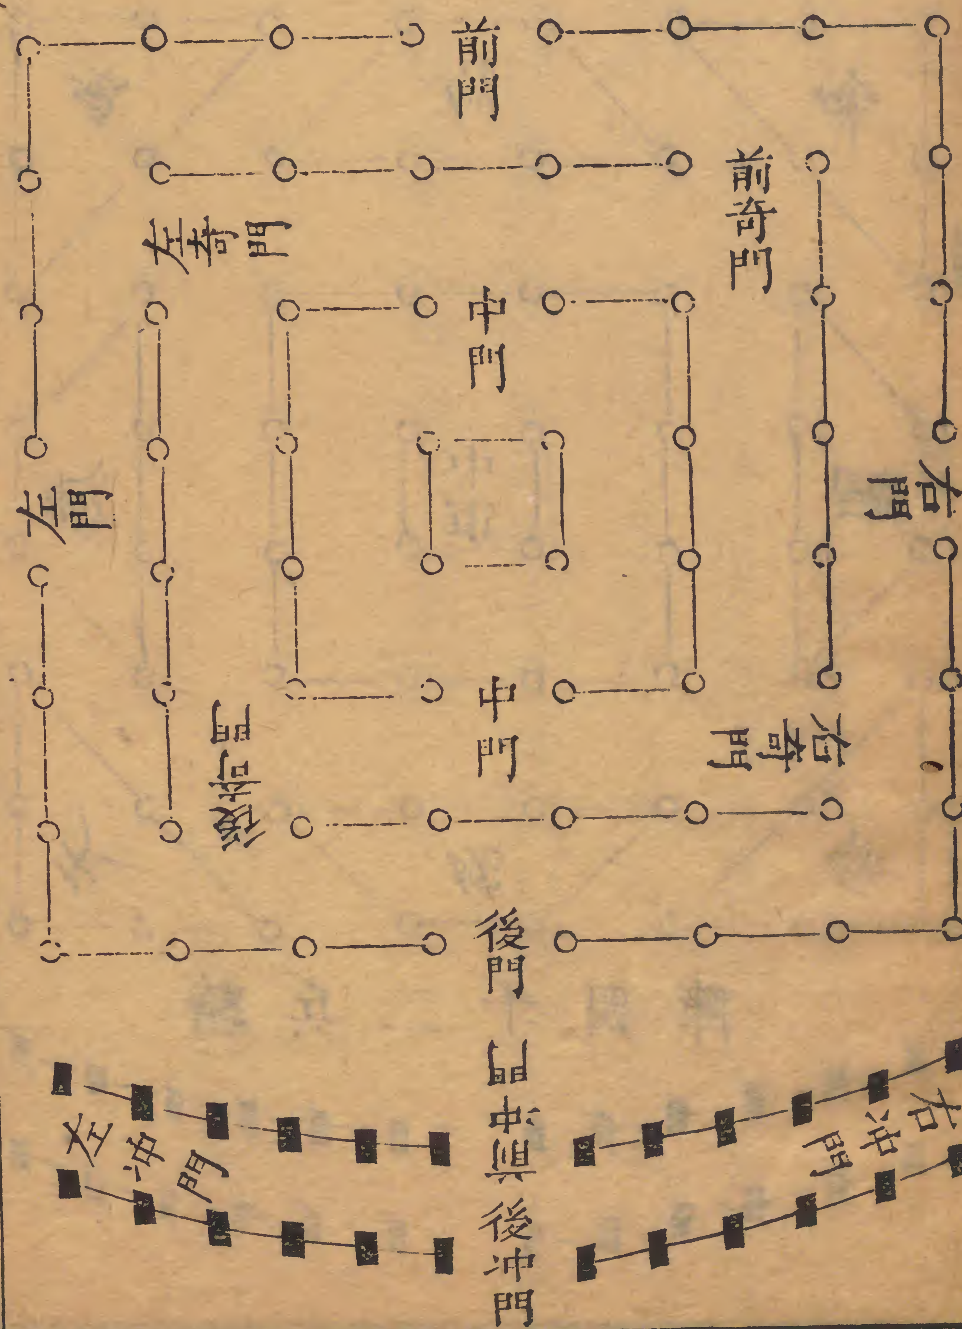 前門
前奇門
左奇門
中門
左門
右門
中門
後奇門
右奇門
後門
前冲門
左冲門
右冲門
後冲門